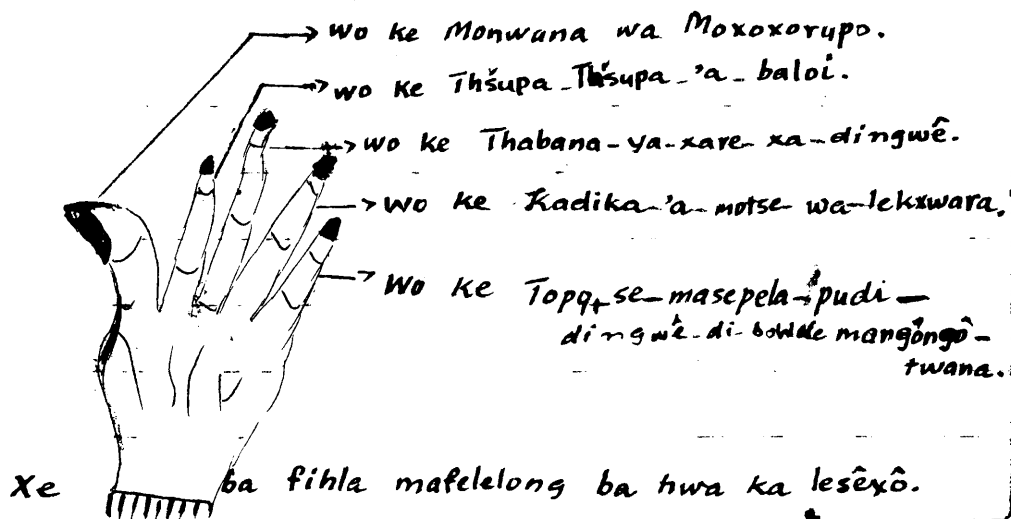 wo ke Monwana wa Moxoxorupo.
wo ke Thšupa-Thšupa-'a-baloi.
wo ke Thabana-ya-xare-xa-dingwê.
wo ke Kadika-'a-motse-wa-lekxwara.
Wo ke se-masepela-pudi-
dingwê-di-
twana.
Xe ba fihla mafelelong ba hwa ka lesêxô.